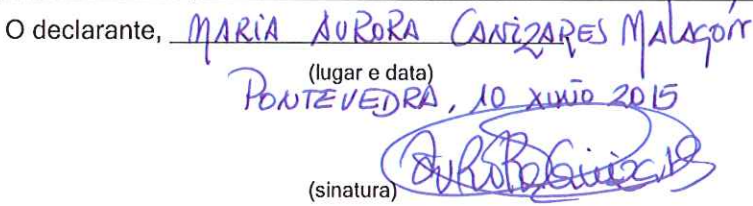 O declarante, MARIA AURORA CANIZARES MALAGÓN
(lugar e data)
PONTEVEDRA, 10 XUÑO 2015
(sinatura)